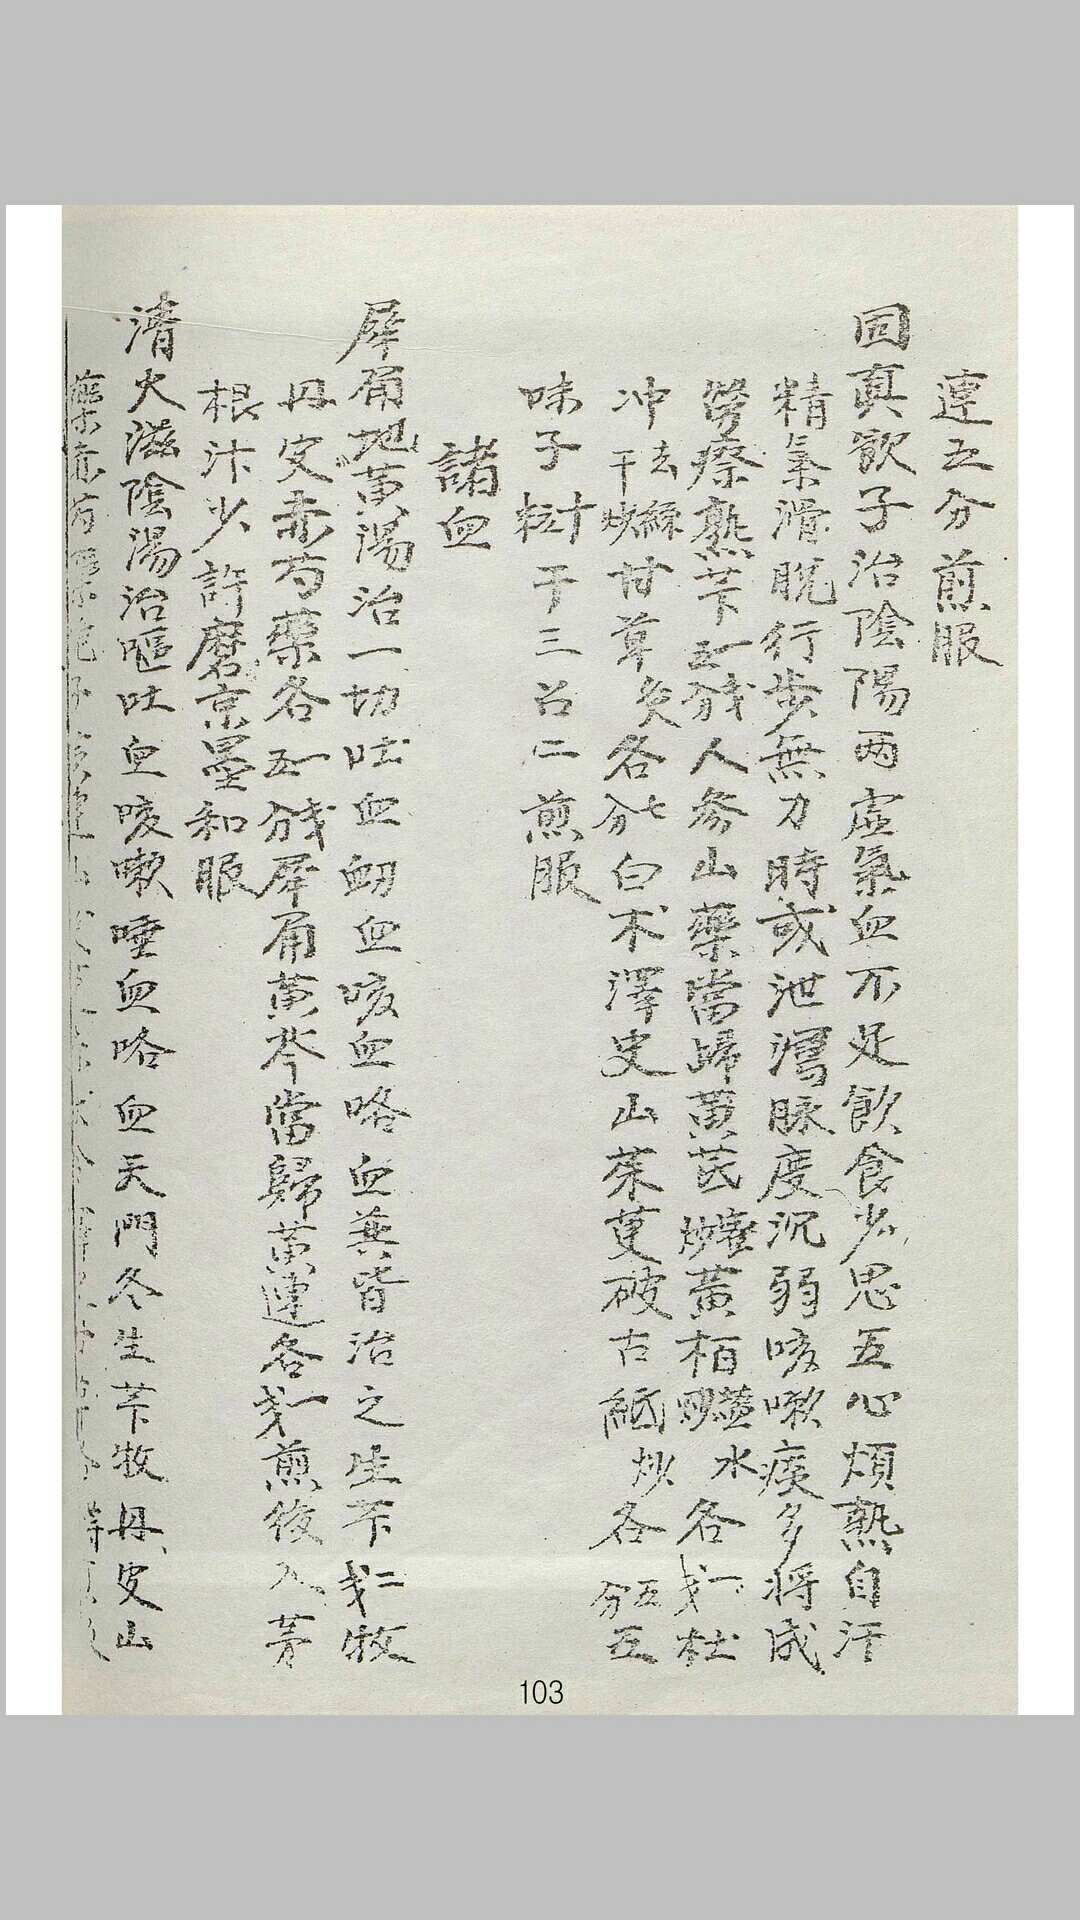 連五分煎服
回真飮子治陰陽两虛氣血不足飮食少思五心煩熱自汗
精氣滑脫行步無力時或泄瀉脉度沉弱咳嗽痰多將成
勞瘵熟芐一戔五分人參山藥當歸黃芪蜜炒黃栢鹽水各一戔杜
冲去絲干炒甘草炙各七分白朮澤舍山茱萸破古紙炒各五分五
味子十粒干三召二煎服
諸血
犀角地黃湯治一切吐血衄血咳血咯血幷皆治之生芐二戔牧
丹皮赤芍藥各一戔五分犀角黃芩當歸黃連各一戔煎後入茅
根汁少許磨京墨和服
淸火滋陰湯治嘔吐血咳嗽唾血咯血天門冬生芐牧丹皮山
藥赤芍